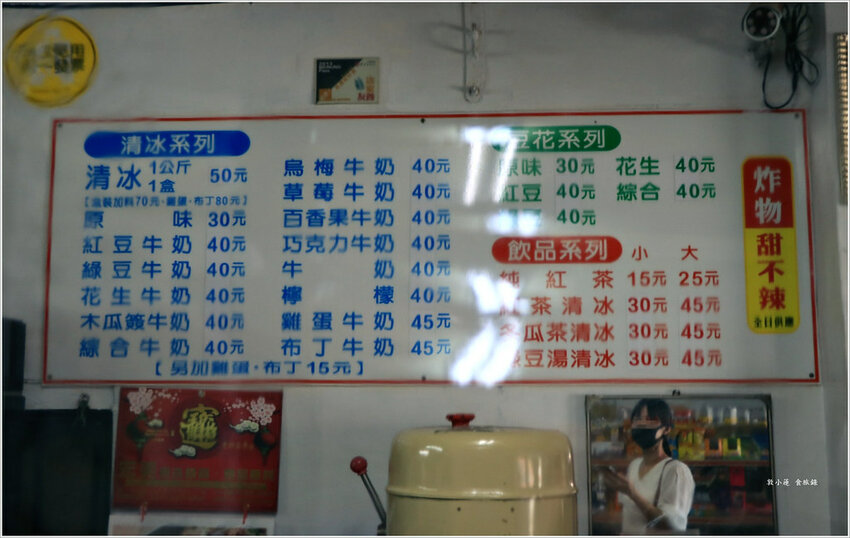 清冰系列
清冰 1公斤 1盒 50元
【盒裝加料70元·雞蛋·布丁80元】
原味 30元
紅豆牛奶 40元
綠豆牛奶 40元
花生牛奶 40元
木瓜簽牛奶 40元
綜合牛奶 40元
烏梅牛奶 40元
草莓牛奶 40元
百香果牛奶 40元
巧克力牛奶 40元
牛奶 40元
檸檬 40元
雞蛋牛奶 45元
布丁牛奶 45元
【另加雞蛋·布丁15元】
豆花系列
原味 30元 花生 40元
紅豆 40元 綜合 40元
40元
飲品系列 小 大
純紅茶 15元 25元
紅茶清冰 30元 45元
冬瓜茶清冰 30元 45元
綠豆湯清冰 30元 45元
炸物
甜不辣
全日供應
敦小蓮 食旅錄